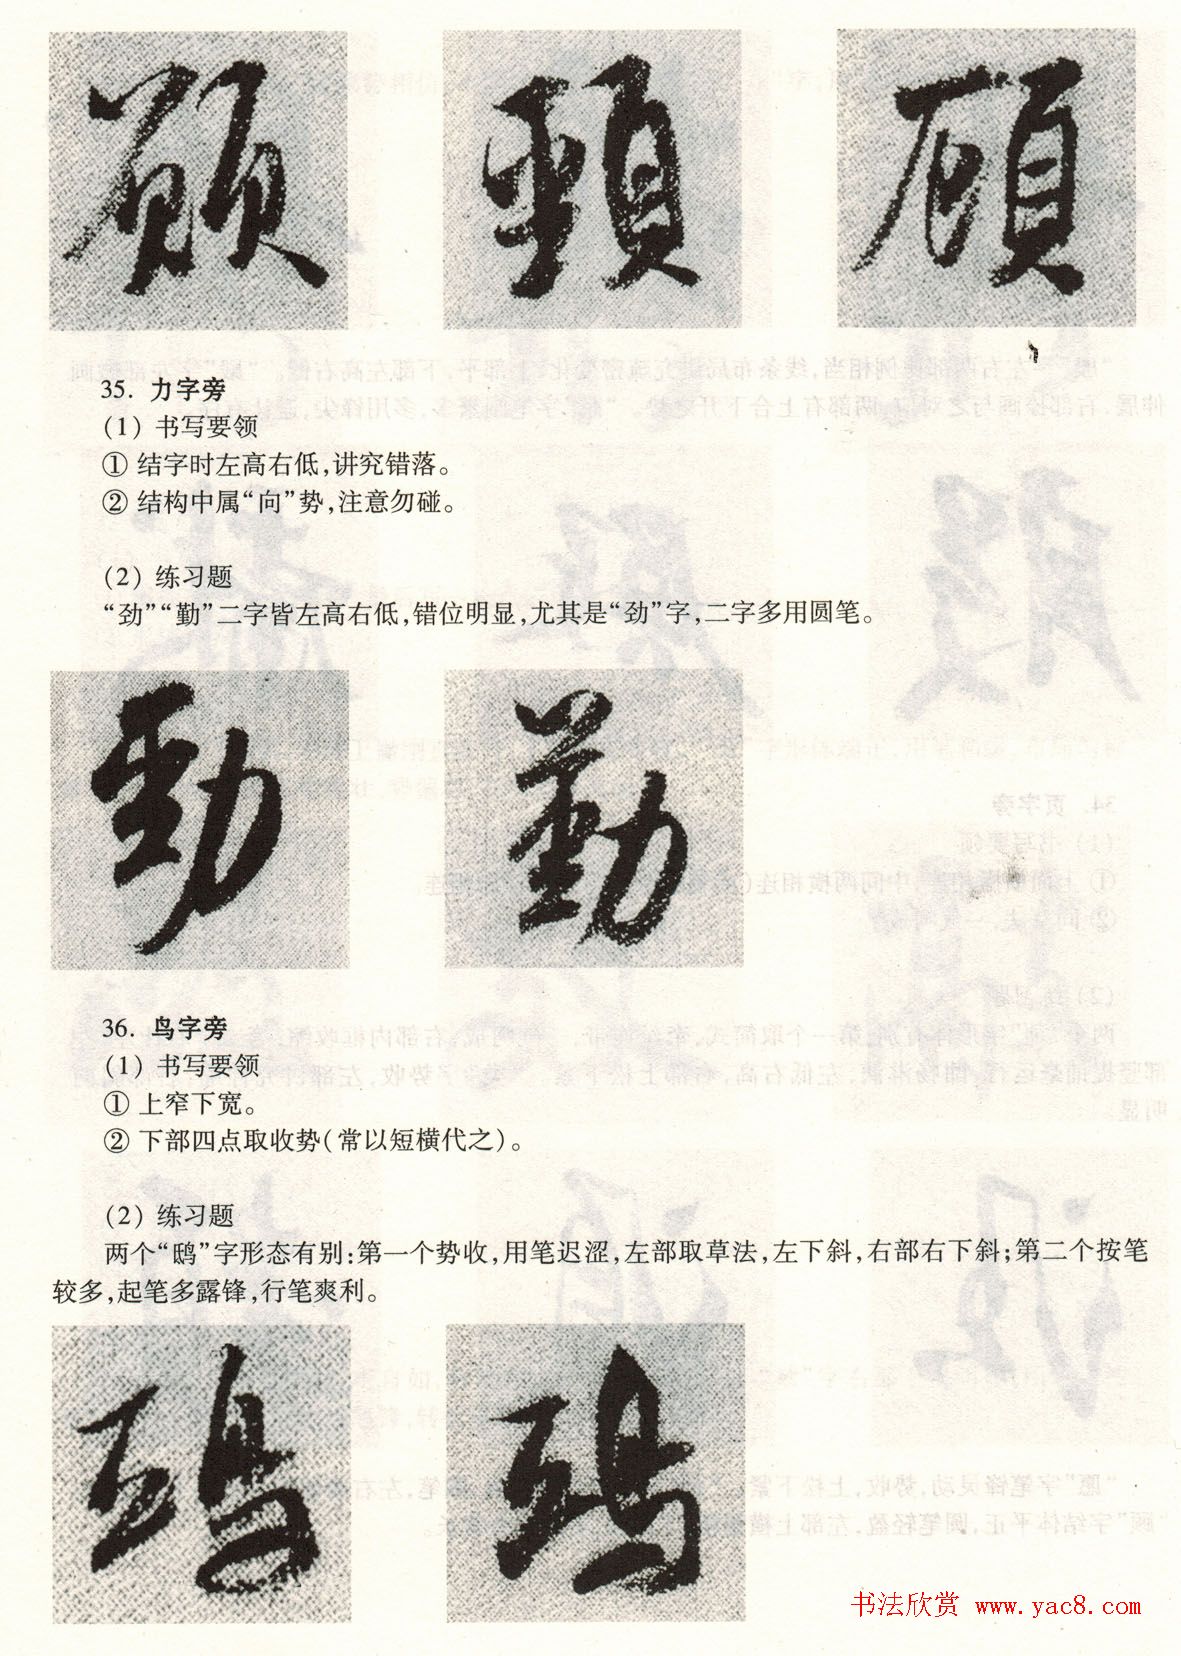 35. 力字旁
(1) 书写要领
① 结字时左高右低,讲究错落。
② 结构中属“向”势,注意勿碰。
(2) 练习题
“劲”“勤”二字皆左高右低,错位明显,尤其是“劲”字,二字多用圆笔。
勁 勤
36. 鸟字旁
(1) 书写要领
① 上窄下宽。
② 下部四点取收势(常以短横代之)。
(2) 练习题
两个“鸱”字形态有别:第一个势收,用笔迟涩,左部取草法,左下斜,右部右下斜;第二个按笔
较多,起笔多露锋,行笔爽利。
书法欣赏 www.yac8.com